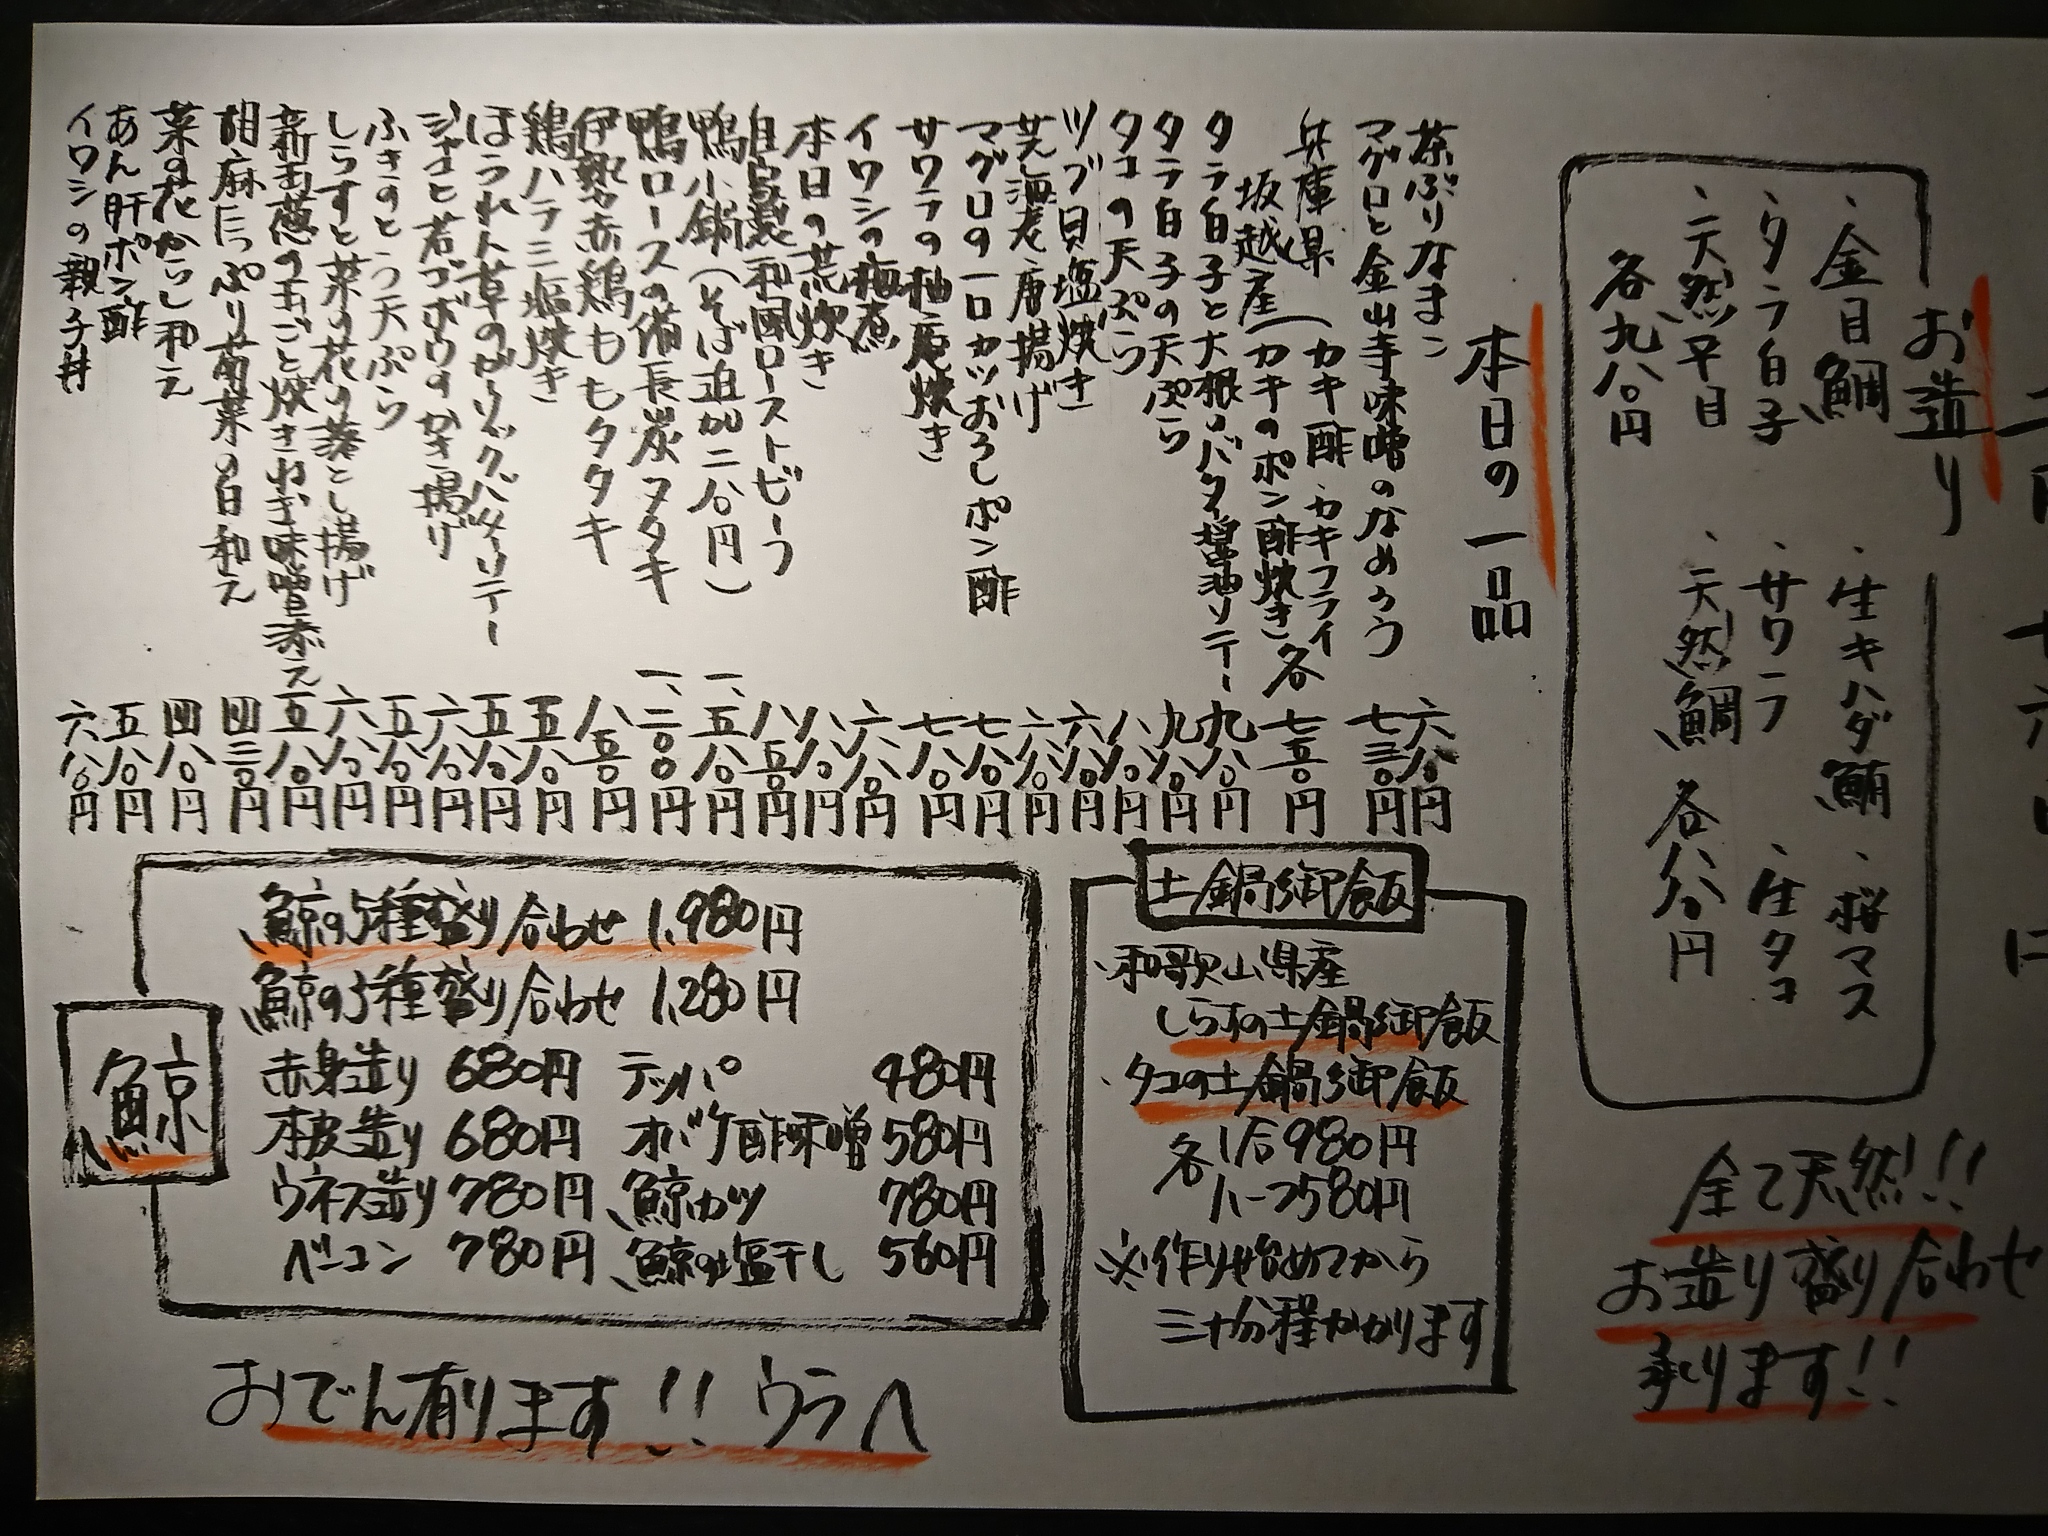 二月二十六日
お造り
・金目鯛 ・生キハダ鮪 ・桜マス
・タラ白子 ・サワラ ・生タコ
・天然平目 ・天然鯛 各八八〇円
各九八〇円
全て天然!!
お造り盛り合わせ
承ります!!
本日の一品
茶ぶりなまこ 六八〇円
マグロと金山寺味噌のなめろう 七三〇円
兵庫県 (カキ酢 カキフライ
坂越産(カキのポン酢焼き)各 七五〇円
タラ白子と大根のバター醤油ソテー 九八〇円
タラ白子の天ぷら 九八〇円
タコの天ぷら 八八〇円
ツブ貝塩焼き 六八〇円
芝海老唐揚げ 六八〇円
マグロの一口カツおろしポン酢 七八〇円
サワラの柚庵焼き 七八〇円
イワシの梅煮 六八〇円
本日の荒炊き 八八〇円
自家製和風ローストビーフ 八五〇円
鴨小鍋(そば追加二八〇円) 一、五八〇円
鴨ロースの備長炭タタキ 一、二〇〇円
伊勢赤鶏ももタタキ 八五〇円
鶏ハラミ塩焼き 五八〇円
ほうれん草のガーリックバターソテー 五八〇円
ジャコと若ゴボウのかき揚げ 六八〇円
ふきのとう天ぷら 五八〇円
しらすと菜の花の落とし揚げ 六八〇円
新玉葱の丸ごと焼きねぎ味噌添え 五八〇円
胡麻たっぷり菊菜の白和え 四三〇円
菜の花からし和え 四八〇円
あん肝ポン酢 五八〇円
イワシの親子丼 六八〇円
土鍋御飯
・和歌山県産
しらすの土鍋御飯
・タコの土鍋御飯
各1合980円
ハーフ580円
※作り始めてから
三十分程かかります
鯨
鯨の5種盛り合わせ 1,980円
鯨の3種盛り合わせ 1,280円
赤身造り 680円 テッパ 480円
本皮造り 680円 オバケ酢味噌 580円
ウネス造り 780円 鯨カツ 780円
ベーコン 780円 鯨の塩干し 560円
おでん有ります!! ウラへ